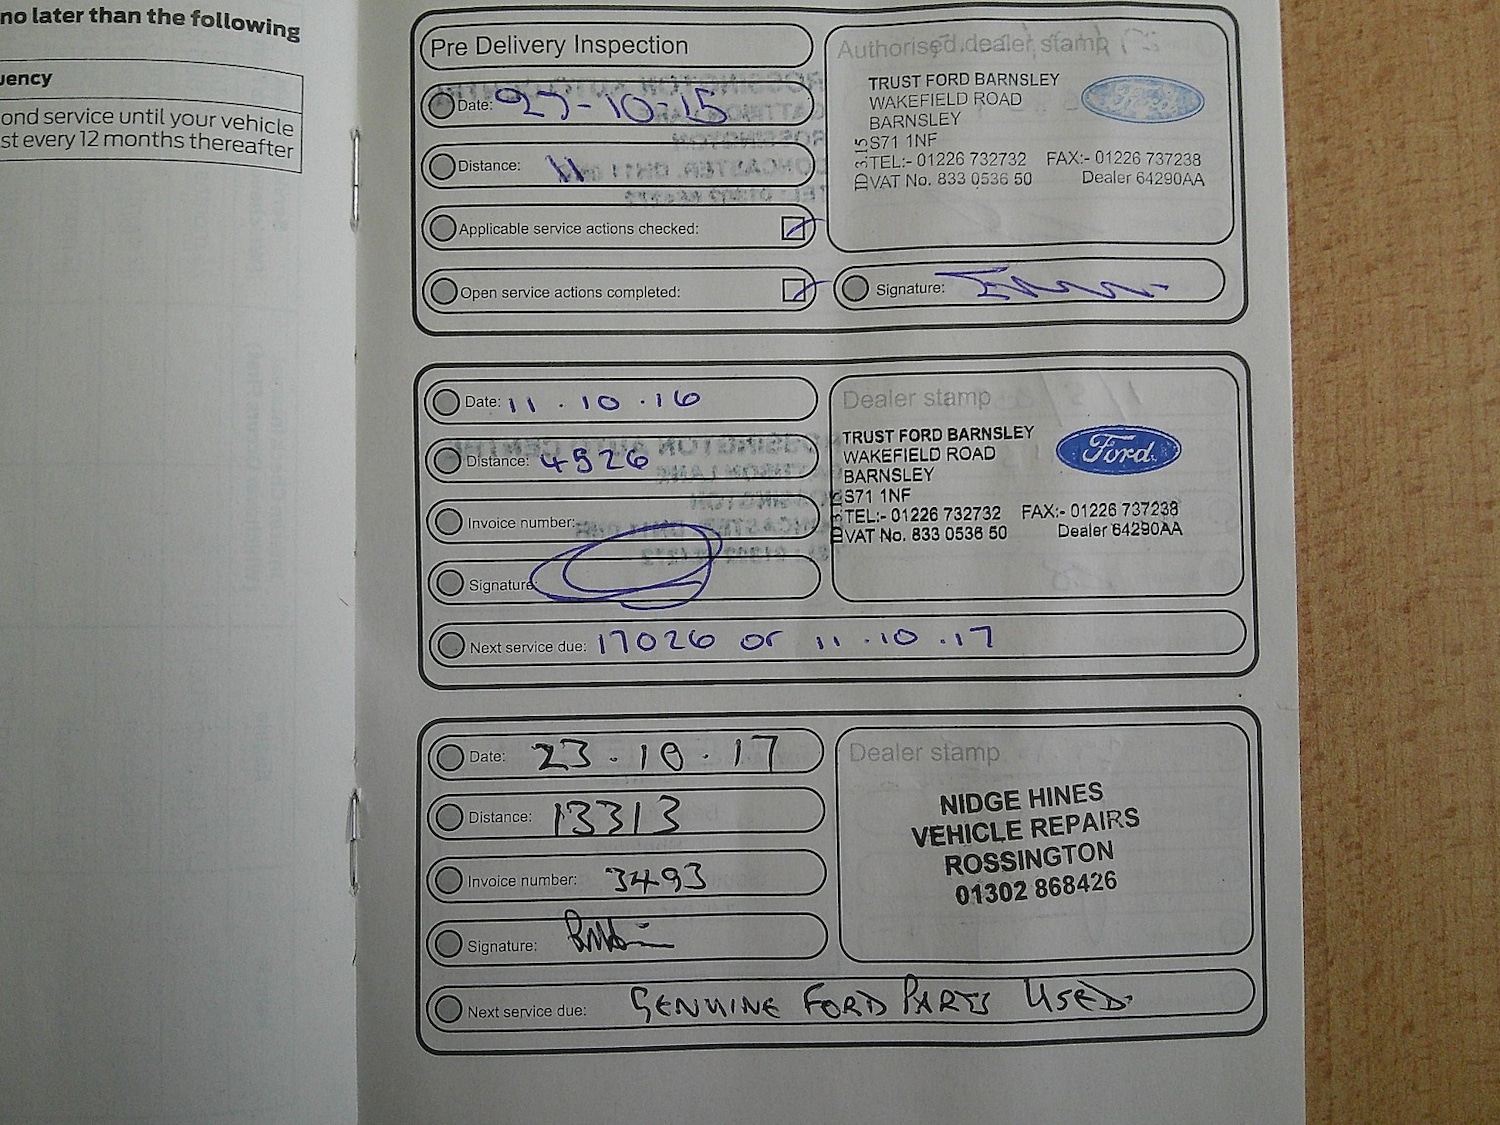 no later than the following
uency
ond service until your vehicle
st every 12 months thereafter
Pre Delivery Inspection
Date: 27-10-15
Distance: 11
Applicable service actions checked:
Open service actions completed:
Authorised dealer stamp
TRUST FORD BARNSLEY
WAKEFIELD ROAD
BARNSLEY
S71 1NF
TEL:- 01226 732732 FAX:- 01226 737238
VAT No. 833 0536 50 Dealer 64290AA
ID 3.15
Ford
Signature:
Date: 11.10.16
Distance: 4526
Invoice number:
Signature:
Next service due: 17026 or 11.10.17
Dealer stamp
TRUST FORD BARNSLEY
WAKEFIELD ROAD
BARNSLEY
S71 1NF
TEL:- 01226 732732 FAX:- 01226 737238
VAT No. 833 0536 50 Dealer 64290AA
Ford
Date: 23.10.17
Distance: 13313
Invoice number: 3493
Signature:
Next service due: GENUINE FORD PARTS USED.
Dealer stamp
NIDGE HINES
VEHICLE REPAIRS
ROSSINGTON
01302 868426